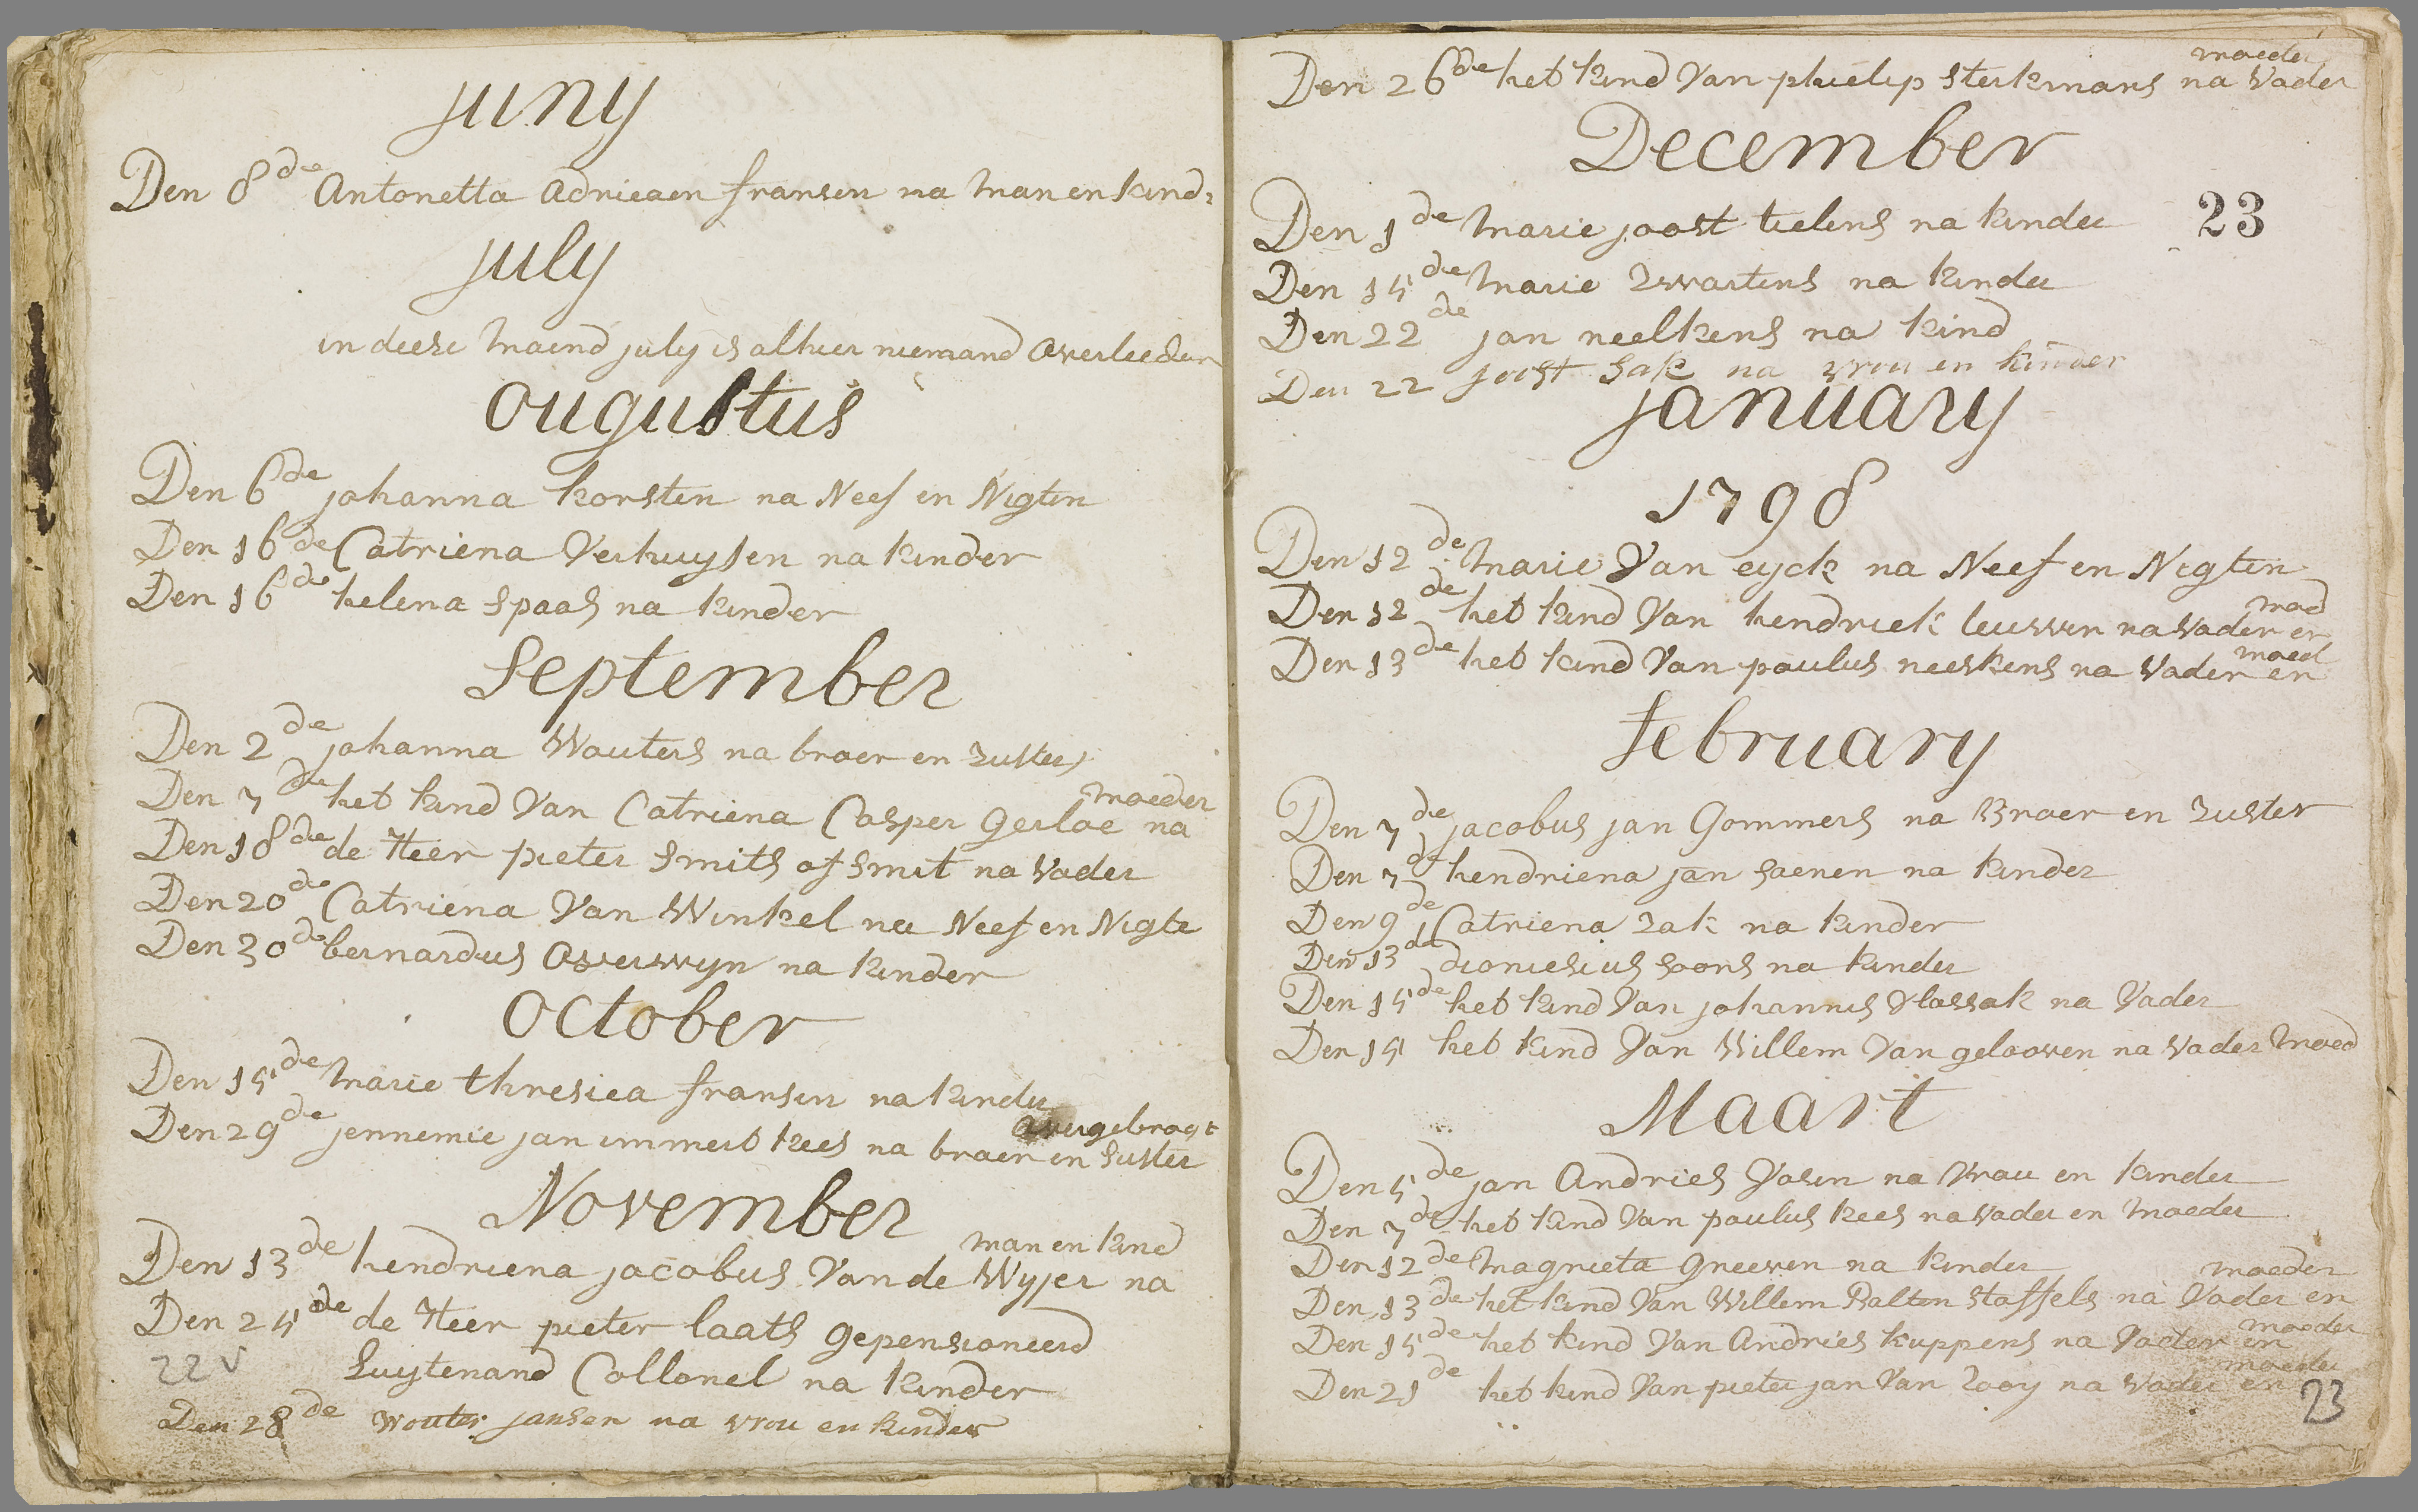 juny
Den 8de Antonetta Adrieaen fransen na Man en kind:
july
in deese Maend july is alhier niemand Overleeden
Ougustus
Den 6de johanna korsten na Neef en Nigten
Den 16de Catriena Verhuysen na kinder
Den 16de helena Spaas na kinder
September
Den 2de johanna Wouters na broer en zuster
Den 7de het kind Van Catriena Casper Gerlae na moeder
Den 18de de Heer pieter Smits of Smit na Vader
Den 20de Catriena Van Winkel na Neef en Nigte
Den 30de bernardus Overwyn na kinder
October
Den 15de Marie thresiea fransen na kinder
overgebragt
Den 29de jennemie jan immert kees na broer en suster
November
Den 13de hendriena jacobus Van de Wyjer na man en kind
Den 25de de Heer pieter laats gepensioneerd
Luytenand Collonel na kinder
22v
Den 28de wouter jansen na vrou en kinder
Den 26de het kind Van phielip Sterkmans na Vader moeder
December
23
Den 1de Marie joost tielens na kinder
Den 15de Marie Zwartens na kinder
Den 22de jan neelkens na kind
Den 22 joost Sak na vrou en kinder
january
1798
Den 12de Marie Van eyck na Neef en Nigten
Den 12de het kind Van hendriek leuwen na Vader en moed
Den 13de het kind Van paulus neeskens na Vader en moed
february
Den 7de jacobus jan Gommers na Broer en Zuster
Den 7de hendriena jan Saenen na kinder
Den 9de Catriena Zak na kinder
Den 13de dioniesius Soons na kinder
Den 15de het kind Van johannis Vlassak na Vader
Den 15 het kind Van Willem Van gelooven na Vader Moed
Maart
Den 5de jan Andries Vasen na Vrou en kinder
Den 7de het kind Van paulus kees na Vader en Moeder
Den 12de Magrieta Greeven na kinder
Den 13de het kind Van Willem Balten Staffels na Vader en moeder
Den 15de het kind Van Andries kuppens na Vader en moeder
Den 21de het kind Van pieter jan Van Rooy na Vader en moeder
23